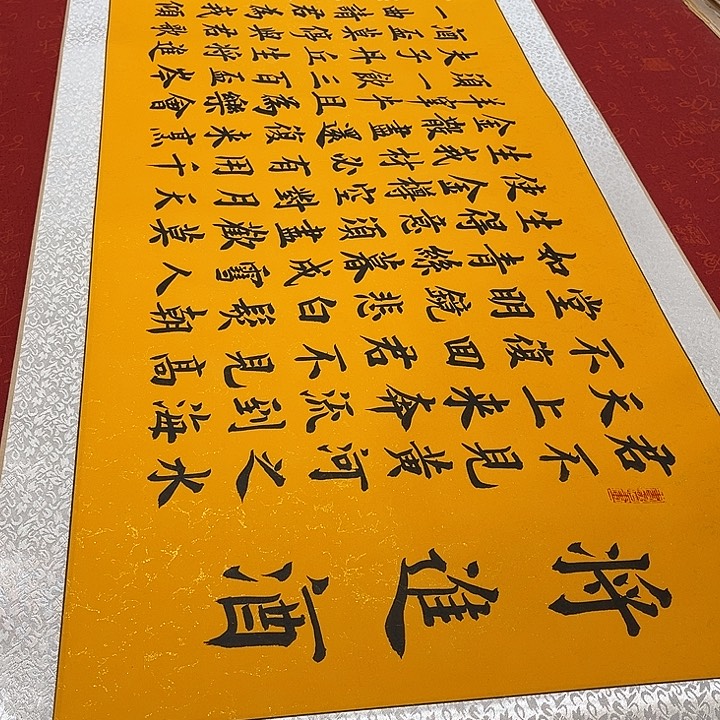 将進酒
君不見黄河之水
天上来奔流到海
不復回君不見高
堂明鏡悲白髮朝
如青絲暮成雪人
生得意須盡歡莫
使金樽空對月天
生我材必有用千
金散盡還復来烹
羊宰牛且為樂會
須一飲三百盃岑
夫子丹丘生将進
酒盃莫停與君歌
一曲請君為我傾